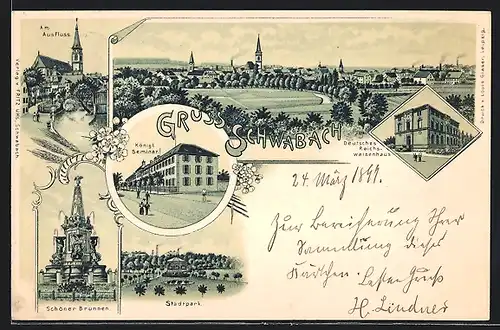 Am
Ausfluss.
Gruss aus
Schwabach
Königl.
Seminar.
Deutsches
Reichs-
waisenhaus
Schöner Brunnen.
Stadtpark.
24. März 1899.
Zur Bereicherung Ihrer
Sammlung dieses
Kärtchen. Besten Gruß
H. Lindner